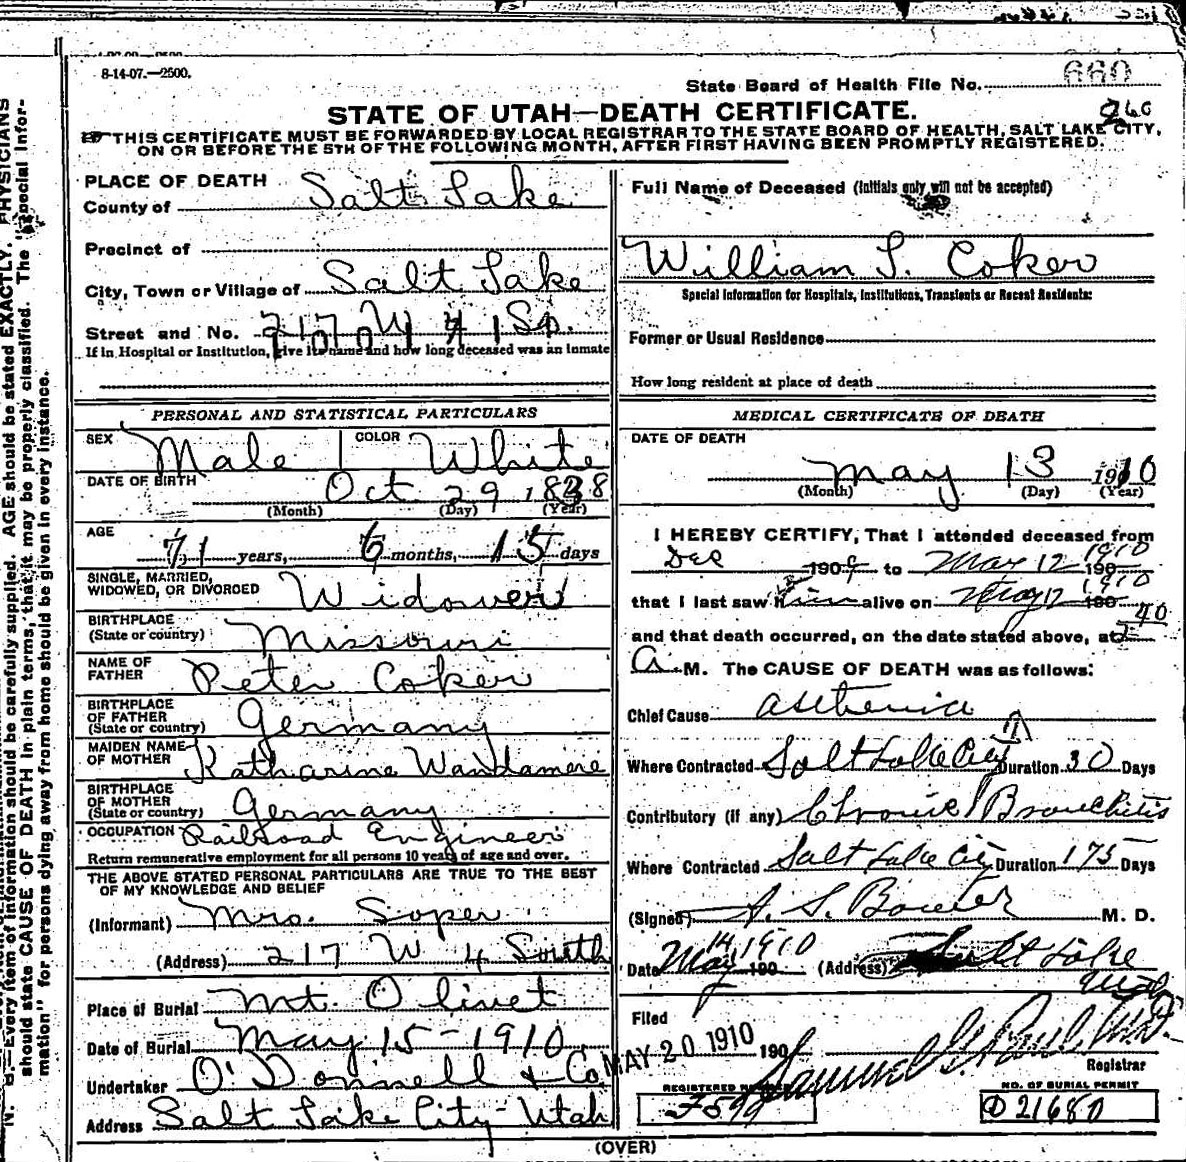 8-14-07.—2500.
State Board of Health File No. 660
STATE OF UTAH—DEATH CERTIFICATE.
260
THIS CERTIFICATE MUST BE FORWARDED BY LOCAL REGISTRAR TO THE STATE BOARD OF HEALTH, SALT LAKE CITY,
ON OR BEFORE THE 5TH OF THE FOLLOWING MONTH, AFTER FIRST HAVING BEEN PROMPTLY REGISTERED.
PLACE OF DEATH
County of Salt Lake
Precinct of
City, Town or Village of Salt Lake
Street and No. 217 W 4 So.
If in Hospital or Institution, give its name and how long deceased was an inmate
PERSONAL AND STATISTICAL PARTICULARS
SEX Male COLOR White
DATE OF BIRTH Oct 29 1838
(Month) (Day) (Year)
AGE 71 years, 6 months, 15 days
SINGLE, MARRIED,
WIDOWED, OR DIVORCED Widower
BIRTHPLACE
(State or country) Missouri
NAME OF
FATHER Peter Coker
BIRTHPLACE
OF FATHER
(State or country) Germany
MAIDEN NAME
OF MOTHER Katharine Wandamere
BIRTHPLACE
OF MOTHER
(State or country) Germany
OCCUPATION Railroad Engineer
Return remunerative employment for all persons 10 years of age and over.
THE ABOVE STATED PERSONAL PARTICULARS ARE TRUE TO THE BEST
OF MY KNOWLEDGE AND BELIEF
(Informant) Mrs. Soper
(Address) 217 W 4 South
Place of Burial Mt. Olivet
Date of Burial May 15-1910
Undertaker O'Donnell & Co
Address Salt Lake City-Utah
Full Name of Deceased (Initials only will not be accepted)
William S. Coker
Special Information for Hospitals, Institutions, Transients or Recent Residents:
Former or Usual Residence
How long resident at place of death
MEDICAL CERTIFICATE OF DEATH
DATE OF DEATH
May 13 1910
(Month) (Day) (Year)
I HEREBY CERTIFY, That I attended deceased from
Dec 1909 to May 12 190 1910
that I last saw him alive on May 12 190 1910
and that death occurred, on the date stated above, at 40
A. M. The CAUSE OF DEATH was as follows:
Chief Cause asthenia
Where Contracted Salt Lake City Duration 30 Days
Contributory (if any) Chronic Bronchitis
Where Contracted Salt Lake City Duration 175 Days
(Signed) A. S. Bower M. D.
Date May 14 1910 190 (Address) Salt Lake
Filed MAY 20 1910 190
Samuel G. Paul, M.D.
Registrar
REGISTERED NUMBER
F599
NO. OF BURIAL PERMIT
D 21680
(OVER)
N. B.—Every item of information should be carefully supplied. AGE should be stated EXACTLY. PHYSICIANS
should state CAUSE OF DEATH in plain terms, that it may be properly classified. The "Special Infor-
mation" for persons dying away from home should be given in every instance.